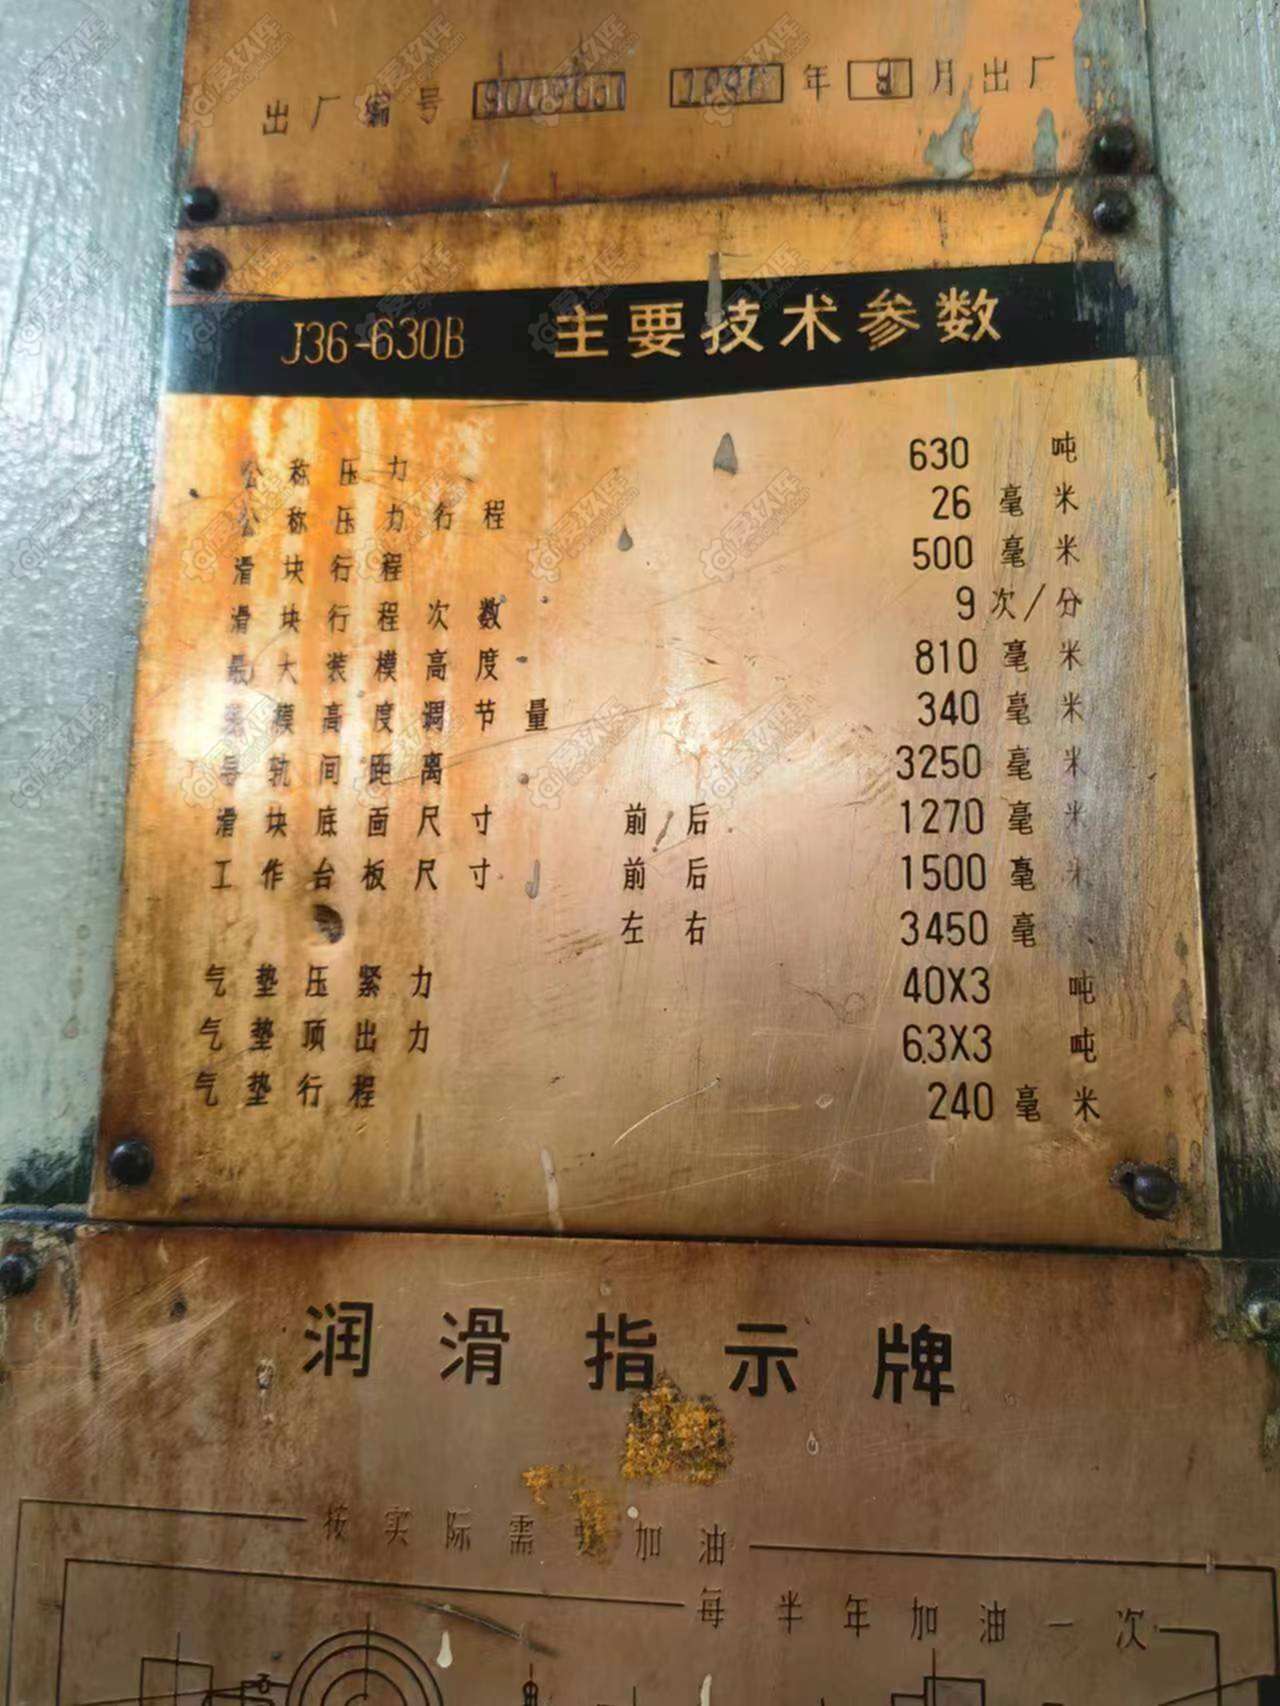 出厂编号 年 9 月出厂
J36-630B 主要技术参数
公称压力 630 吨
公称压力行程 26 毫米
滑块行程 500 毫米
滑块行程次数 9 次/分
最大装模高度 810 毫米
装模高度调节量 340 毫米
导轨间距离 3250 毫米
滑块底面尺寸 前后 1270 毫米
工作台板尺寸 前后 1500 毫米
左右 3450 毫
气垫压紧力 40X3 吨
气垫顶出力 6.3X3 吨
气垫行程 240 毫米
润滑指示牌
按实际需要加油
每半年加油一次